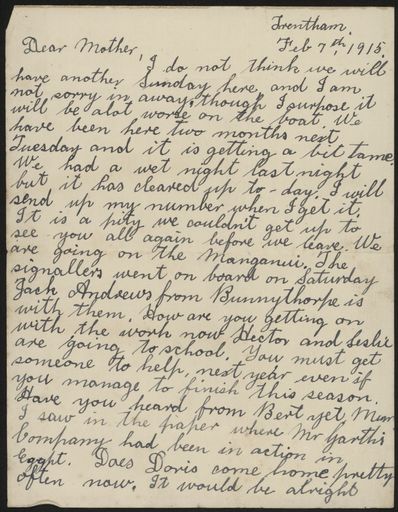 Trentham.
Feb 7th, 1915.
Dear Mother,
I do not think we will
have another Sunday here, and I am
not sorry in away, though I surpose it
will be alot worse on the boat. We
have been here two months next
Tuesday and it is getting a bit tame.
We had a wet night last night
but it has cleared up to-day. I will
send up my number when I get it.
It is a pity we couldn't get up to
see you all again before we leave. We
are going on the Manganui. The
signallers went on board on Saturday
Jack Andrews from Bunnythorpe is
with them. How are you getting on
with the work now Hector and Leslie
are going to school. You must get
someone to help, next year even if
you manage to finish this season.
Have you heard from Bert yet Mum
I saw in the paper where Mr Garth's
Company had been in action in
Egypt. Does Doris come home pretty
often now. It would be alright